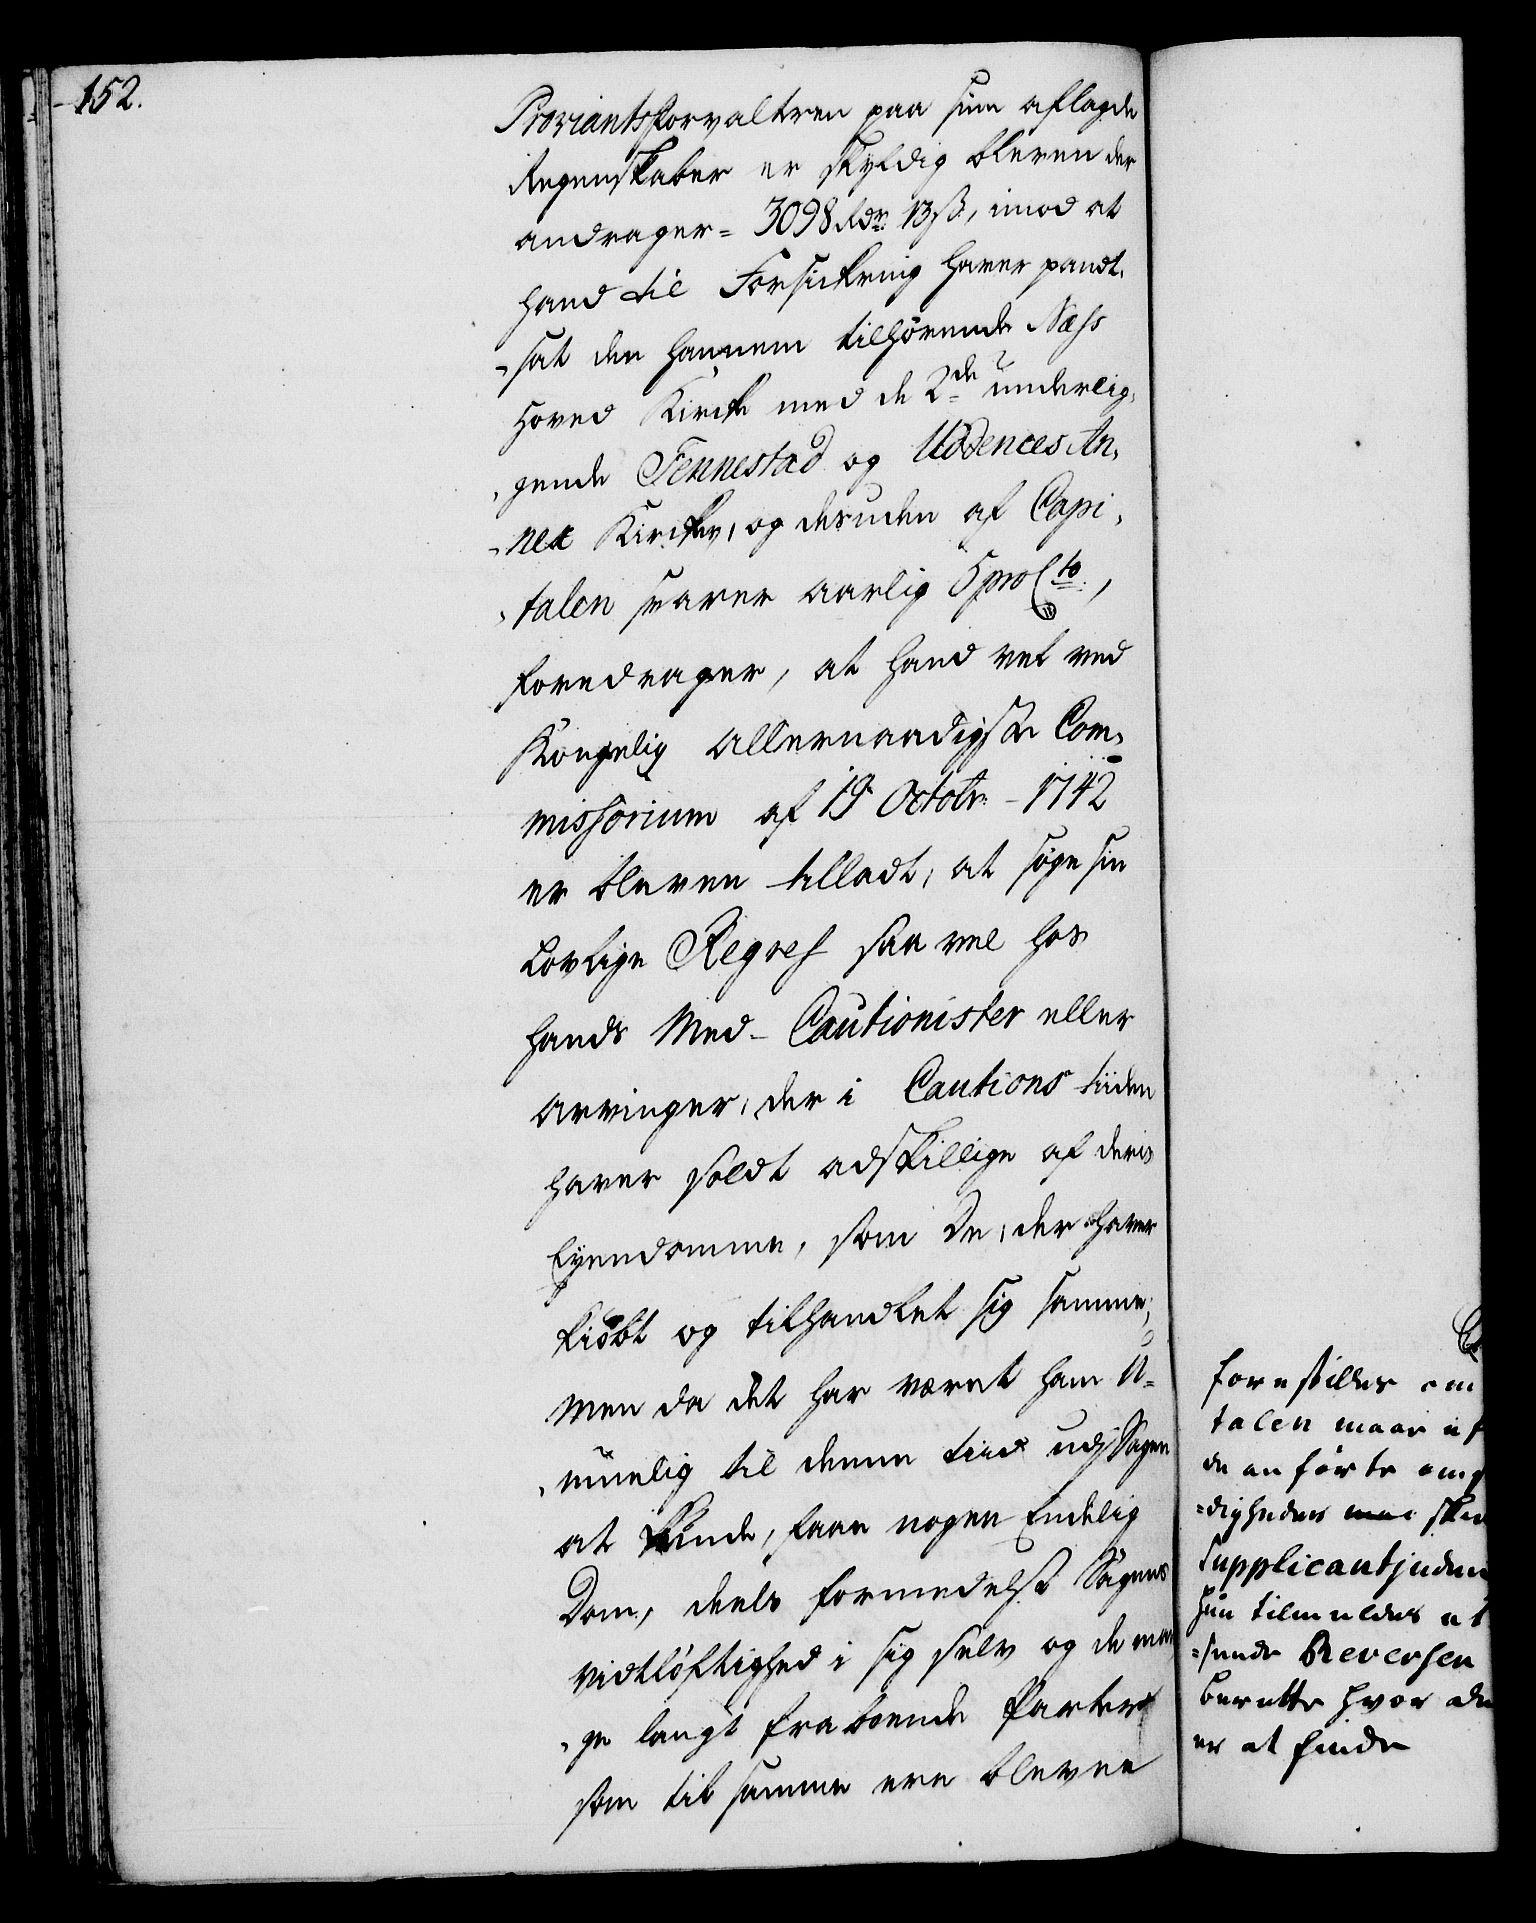 152.
Proviantsforvaltren paa sine aflagde
Regenskaber er skyldig bleven der
andrager = 3098 Rdr. 13 ß, imod at
hand til Forsickring haver pandt,
-sat den hannem tilhørende Næss
Hoved Kircke med de 2de underlig,
,gende Tennestad og Uddences An,
-nex Kircker, og desuden af Capi,
,talen svarer aarlig 5 pro Cto,
foredrager, at hand vel ved
Kongelig allernaadigste Com,
missorium af 19 Octobr. - 1742
er bleven tilladt, at søge sin
Lovlige Regress saa vel hos
hands Med-Cautionister eller
Arvinger, der i Cautions tiiden
haver soldt adskillige af deris
Eyendomme, som De, der haver
kiøbt og tilhandlet sig samme;
Men da det har været ham U-
,muelig til denne tiid udj Sagen
at kunde faae nogen Endelig
Dom, deels formedelst Sagens
vidtløftighed i sig selv og de man
,ge langt fra boende Parter
som til samme ere blevne
forestilles om
talen maae af
de anførte om
-digheder skee
Supplicant
hun tilmeldes at
-sende Reversen
berette hvor
er at finde